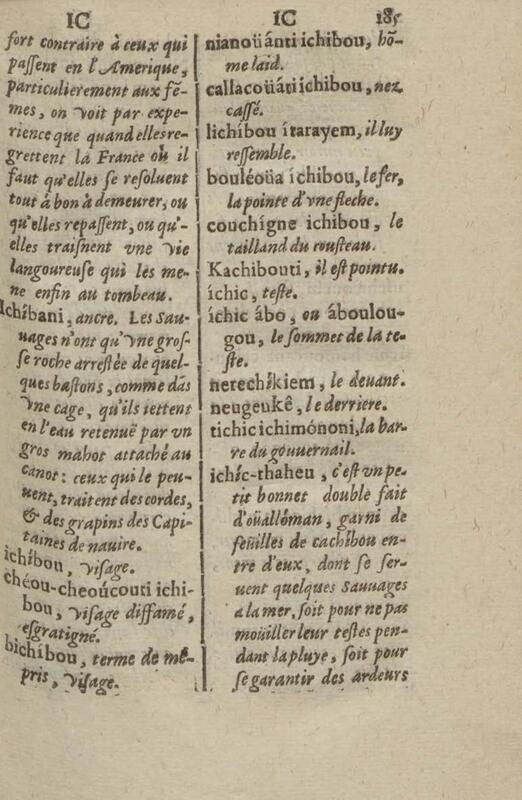 IC
fort contraire à ceux qui
paſſent en l'Amerique,
particulierement aux fē-
mes, on voit par expe-
rience que quand elles re-
grettent la France où il
faut qu'elles ſe reſoluent
tout à bon à demeurer, ou
qu'elles repaſſent, ou qu'-
elles traiſnent vne vie
langoureuse qui les me-
ne enfin au tombeau.
Ichíbani, ancre. Les Sau-
uages n'ont qu'vne groſ-
ſe roche arreſtée de quel-
ques baſtons, comme dãs
vne cage, qu'ils iettent
en l'eau retenuë par vn
gros mahot attaché au
canot: ceux qui le peu-
uent, traitent des cordes,
& des grapins des Capi-
taines de nauire.
ichíbou, viſage.
chéou-cheoúcouti ichi-
bou, viſage diffamé,
eſgratigné.
bichíbou, terme de mé-
pris, viſage.
IC 185
nianoüánti ichibou, hõ-
me laid.
callacoüáti ichibou, nez
caſſé.
lichíbou ítarayem, il luy
reſſemble.
bouléoüa íchibou, le fer,
la pointe d'vne fleche.
couchígne ichibou, le
tailland du couſteau.
Kachibouti, il eſt pointu.
íchic, teſte.
íchic ábo, ou áboulou-
gou, le ſommet de la te-
ſte.
nerechíkiem, le deuant.
neugeukê, le derriere.
tichic ichimónoni, la bar-
re du gouuernail.
ichíc-thaheu, c'eſt vn pe-
tit bonnet double fait
d'oüallóman, garni de
feüilles de cachíbou en-
tre d'eux, dont ſe ſer-
uent quelques Sauuages
a la mer, ſoit pour ne pas
moüiller leur teſtes pen-
dant la pluye, ſoit pour
ſe garantir des ardeurs